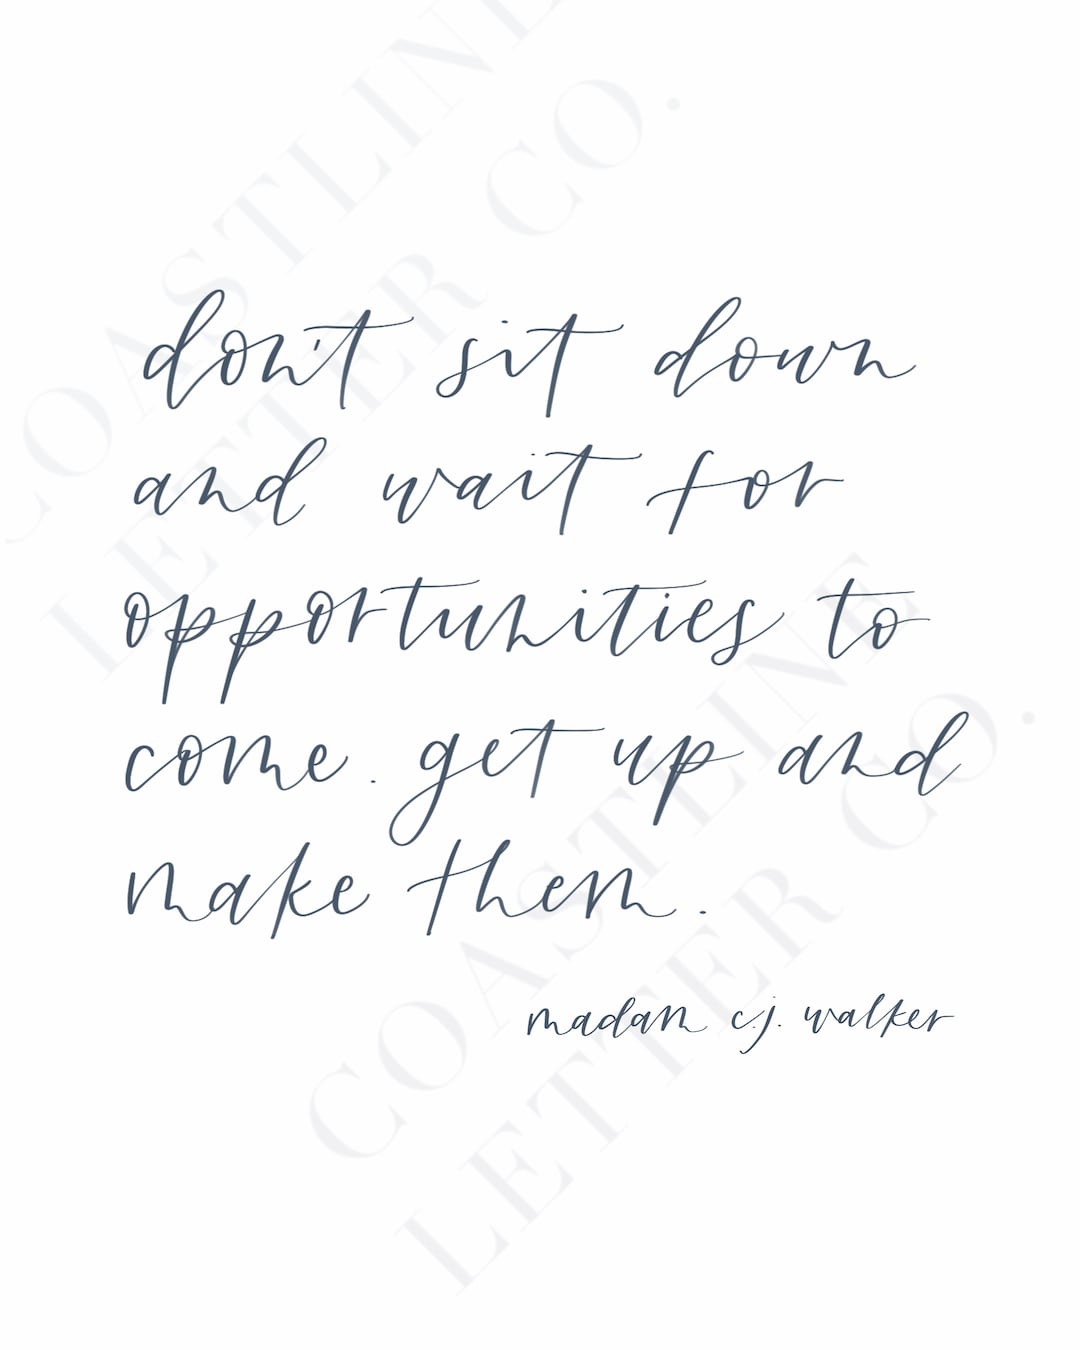 COASTLINE
LETTER CO.
don't sit down
and wait for
opportunities to
come. get up and
make them.
madam c.j. walker
COASTLINE
LETTER CO.